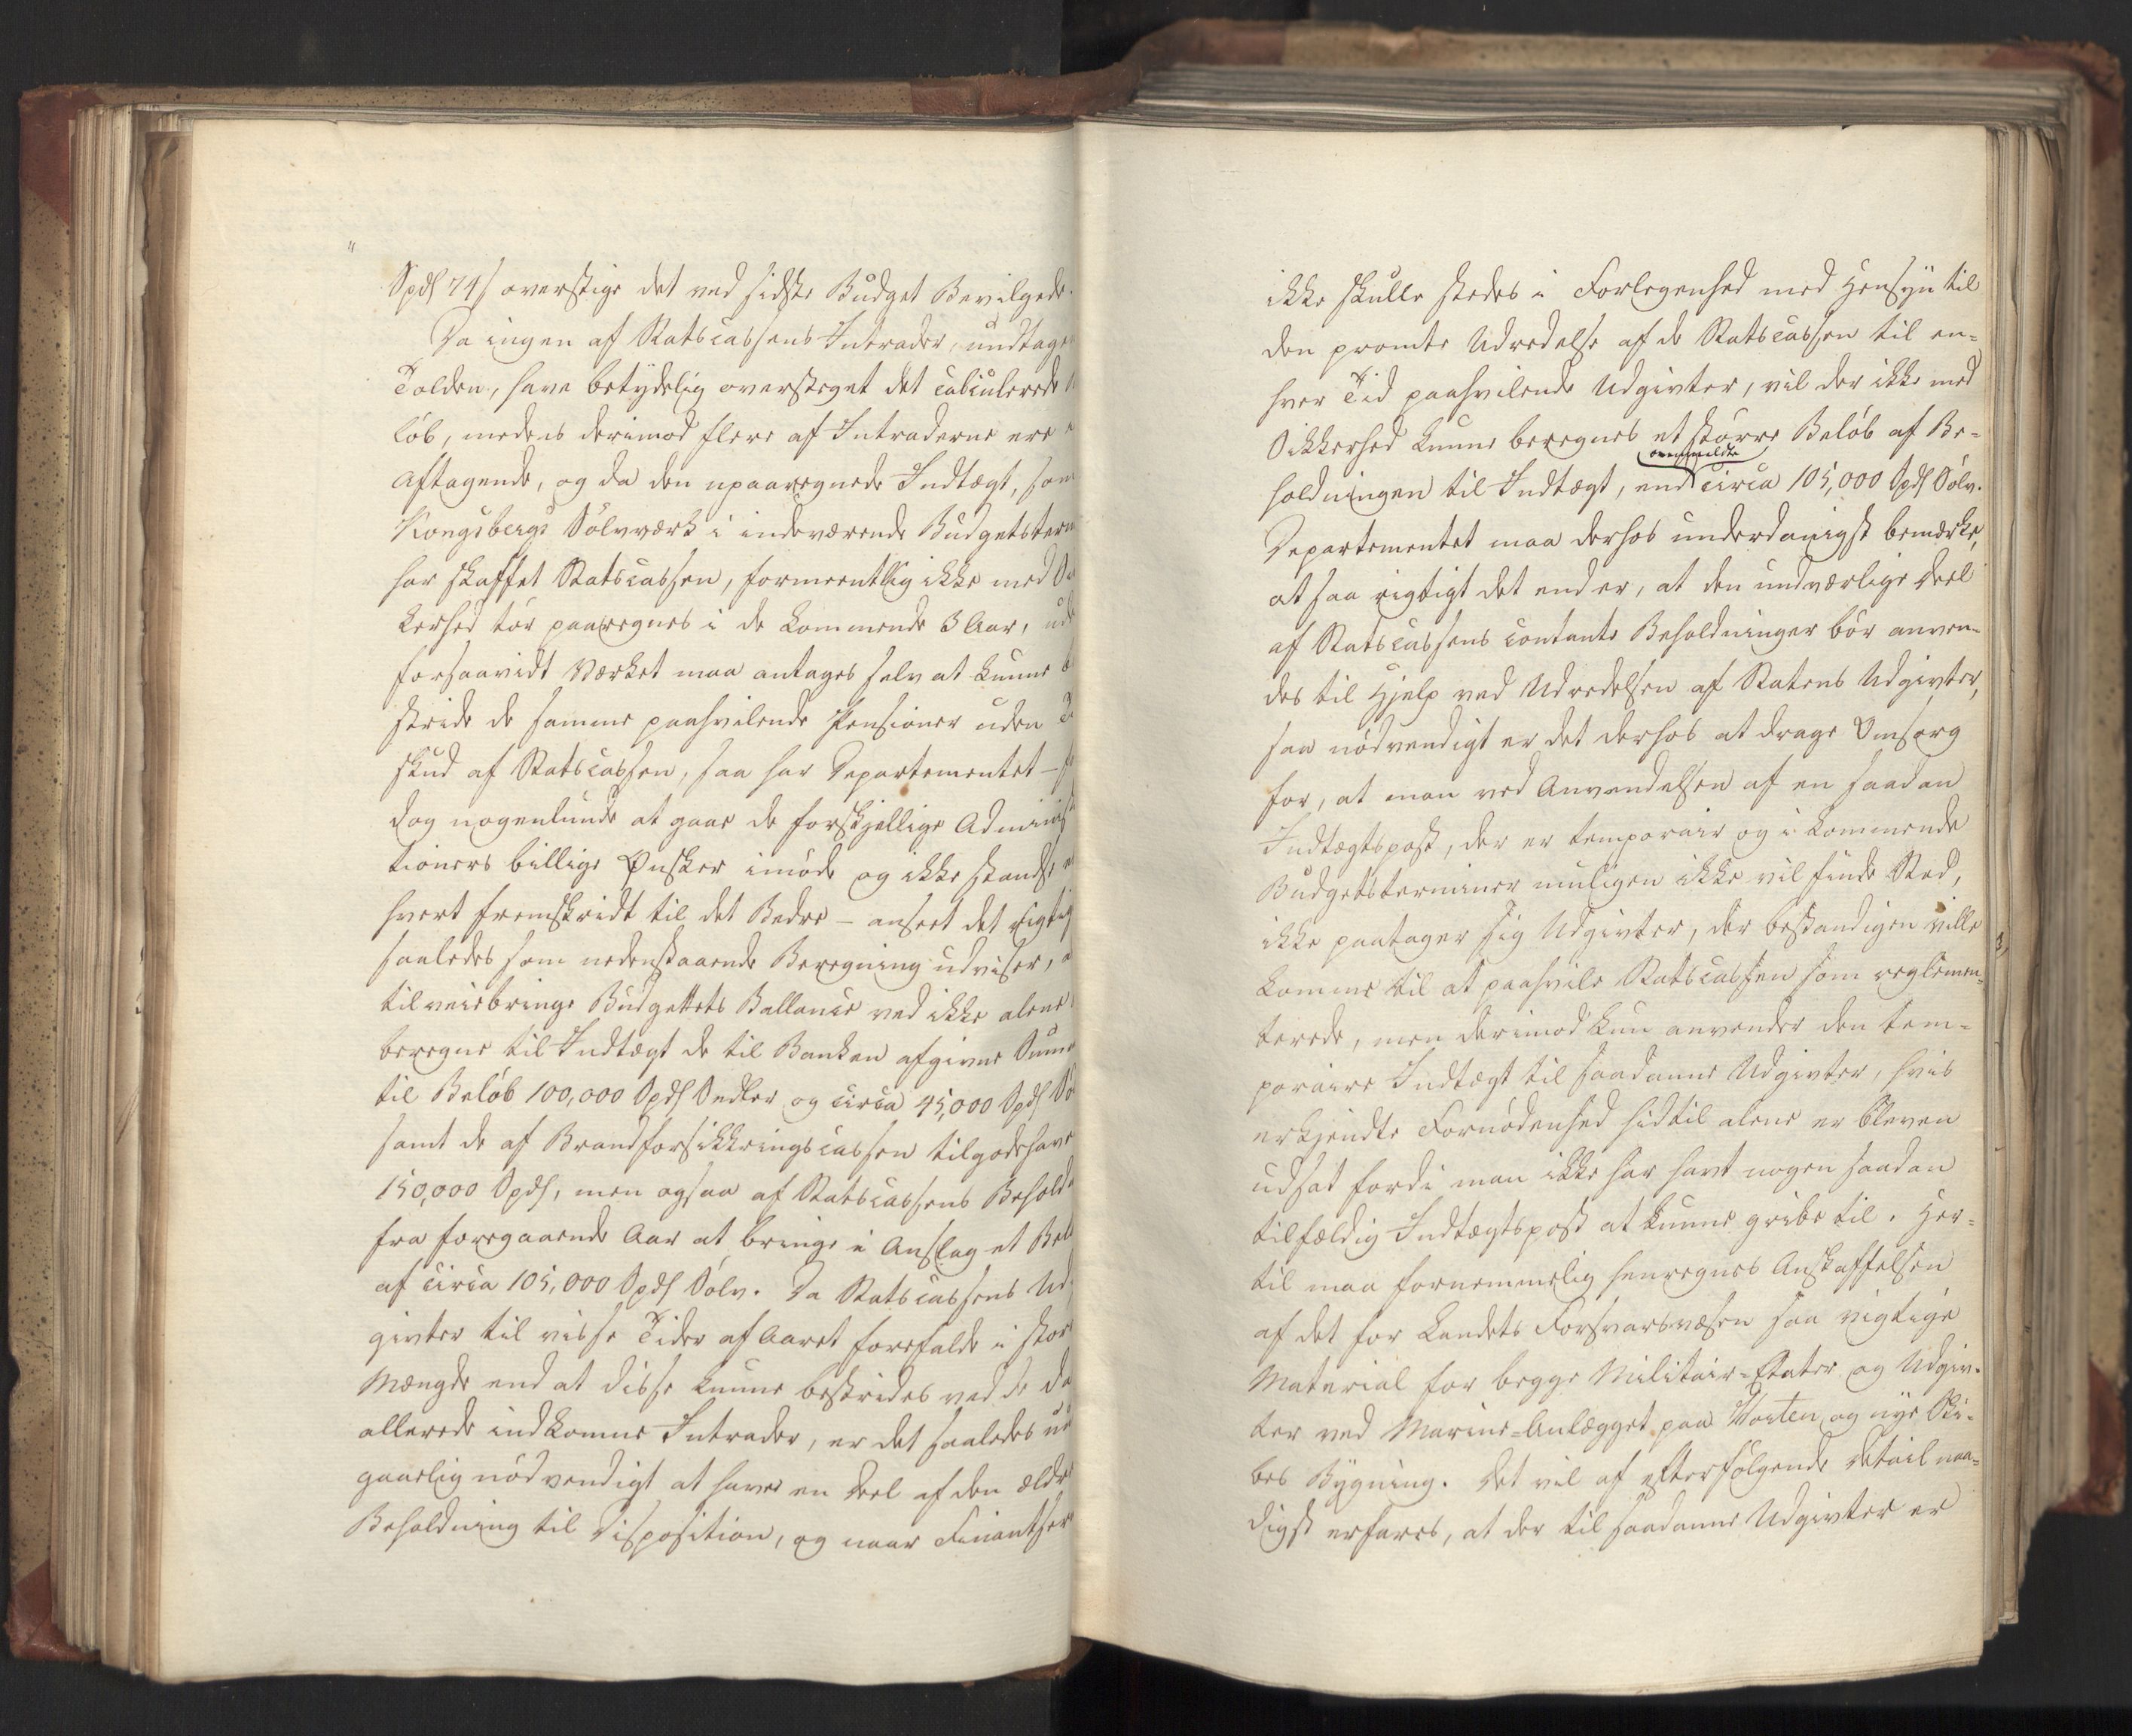 Spd 74 s overstige det ved sidste Budget Bevilgede.
Da ingen af Statscassens Intrader, undtagen
Tolden, have betydelig oversteget det calculerede
löb, medens derimod flere af Intraderne ere
aftagende, og da den upaaregnede Indtægt, som
Kongsbergs Sölvværk i indeværende Budgetstermin
har skaffet Statscassen, formeentlig ikke med
kerhed tör paaregnes i de kommende 3 Aar, uden
forsaavidt Værket maa antages selv at kunne
stride de samme paahvilende Pensioner uden
skud af Statscassen, saa har Departementet –
dog nogenlunde at gaae de forskjellige Administra
tioners billige Ønsker imöde og ikke standse
hvert Fremskridt til det Bedre – anseet det rigtig
saaledes som nedenstaaende Beregning udviser,
tilveiebringe Budgettets Ballance ved ikke alene
beregne til Indtægt de til Banken afgivne Summer
til Belöb 100,000 Spd Sedler og circa 45,000 Spd Sölv
samt de af Brandforsikkringscassen tilgodehave
150,000 Spd, men ogsaa af Statscassens Behold
fra foregaaende Aar at bringe i Anslag et Belöb
af circa 105,000 Spd Sölv. Da Statscassens Ud-
givter til visse Tider af Aaret forefalde i större
Mængde end at disse kunne bestrides ved de da
allerede indkomne Intrader, er det saaledes und
gaaelig nödvendigt at have en Deel af den ældre
Beholdning til Disposition, og naar Finantserne
ikke skulle stedes i Forlegenhed med Hensyn til
den promte Udredelse af de Statscassen til en-
hver Tid paahvilende Udgivter, vil der ikke med
Sikkerhed kunne beregnes et större Belöb af Be-
holdningen til Indtægt, end ommeldte circa 105,000 Spd Sölv.
Departementet maa derhos underdanigst bemærke,
at saa rigtigt det end er, at den undværlige Deel
af Statscassens contante Beholdninger bör anven-
des til Hjelp ved Udredelsen af Statens Udgivter,
saa nödvendigt er det derhos at drage Omsorg
for, at man ved Anvendelsen af en saadan
Indtægtspost, der er temporair og i kommende
Budgetsterminer muligen ikke vil finde Sted,
ikke paatager sig Udgivter, der bestandigen ville
komme til at paahvile Statscassen som reglemen-
terede, men derimod kun anvender den tem-
poraire Indtægt til saadanne Udgivter, hvis
erkjendte Fornödenhed hidtil alene er bleven
udsat fordi man ikke har havt nogen saadan
tilfældig Indtægtspost at kunne gribe til. Her-
til maa fornemmelig henregnes Anskaffelsen
af det for Landets Forsvarsvæsen saa vigtige
Material for begge Militair-Etater og Udgiv-
ter ved Marine-Anlægget paa Horten og nye Ski-
bes Bygning. Det vil af efterfölgende Detail naa-
digst erfares, at der til saadanne Udgivter er